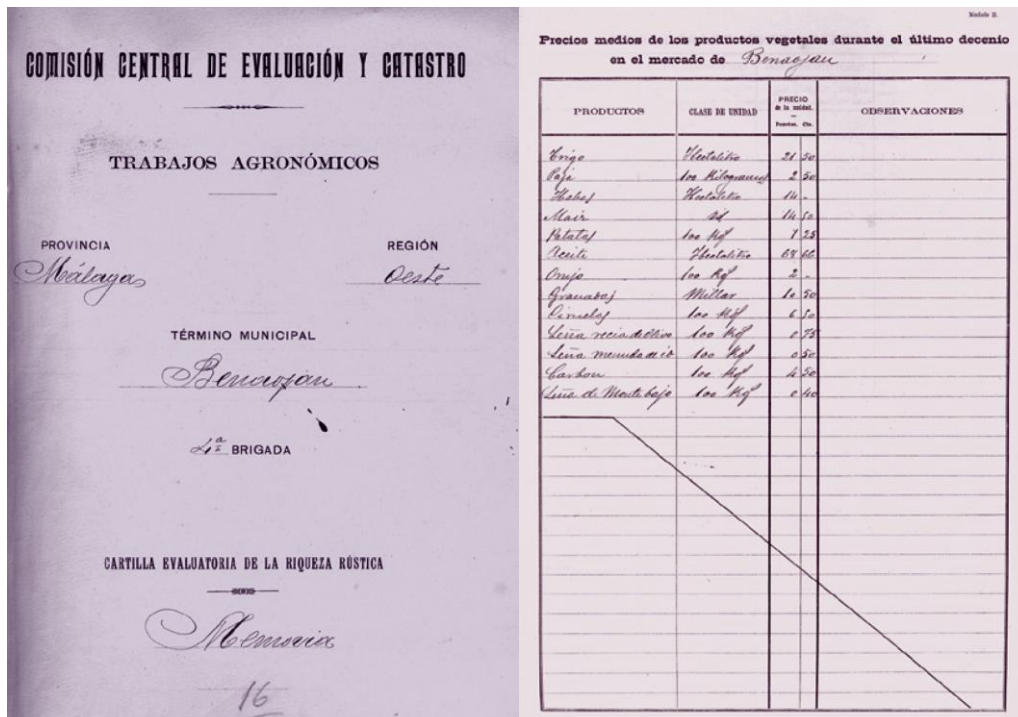 COMISIÓN CENTRAL DE EVALUACIÓN Y CATASTRO
TRABAJOS AGRONÓMICOS
PROVINCIA REGIÓN
Málaga Oeste
TÉRMINO MUNICIPAL
Benaojan
4ª BRIGADA
CARTILLA EVALUATORIA DE LA RIQUEZA RÚSTICA
Memoria
16
Modelo B.
Precios medios de los productos vegetales durante el último decenio
en el mercado de Benaojan
PRODUCTOS CLASE DE UNIDAD PRECIO de la unidad. Pesetas. Cts. OBSERVACIONES
Trigo Hectolitro 21 50
Paja 100 Kilogramos 2 50
Habas Hectolitro 14 -
Maiz id 14 50
Patatas 100 Kg 7 25
Aceite Hectolitro 68 60
Orujo 100 Kg 2 -
Granadas Millar 10 50
Ciruelas 100 Kg 6 50
Leña recia de olivo 100 Kg 0 75
Leña menuda de id 100 Kg 0 50
Carbon 100 Kg 4 50
Leña de Monte bajo 100 Kg 0 40